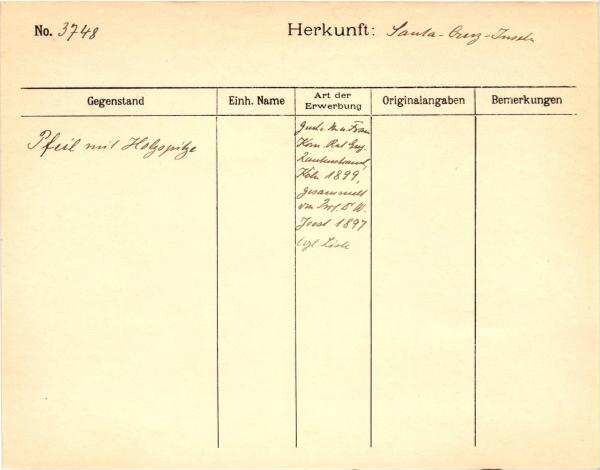 No. 3748
Herkunft: Santa-Cruz-Inseln
Gegenstand
Einh. Name
Art der
Erwerbung
Originalangaben
Bemerkungen
Pfeil mit Holzspitze
Frau
Kom. Rat Eug.
Rautenstrauch,
Köln 1899,
gesammelt
von Prof. Dr. W.
Joest 1897
vgl. Liste